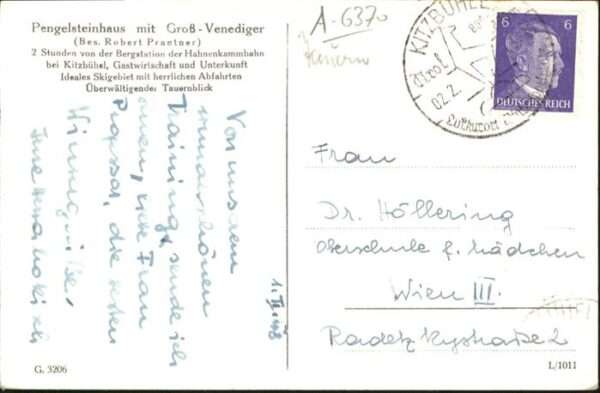 Pengelsteinhaus mit Groß-Venediger
(Bes. Robert Prantner)
2 Stunden von der Bergstation der Hahnenkammbahn
bei Kitzbühel, Gastwirtschaft und Unterkunft
Ideales Skigebiet mit herrlichen Abfahrten
Überwältigender Tauernblick
A-6370
KITZBÜHEL
Tirol
02.2.
Luftkurort
6 6
DEUTSCHES REICH
Von unserem
wunderschönen
Training sende ich
Ihnen, liebe Frau
Professor, die besten
Wintergrüße,
Ihre
Frau
Dr. Höllering
Oberschule f. Mädchen
Wien III.
Radetzkystraße 2
G. 3206
L/1011